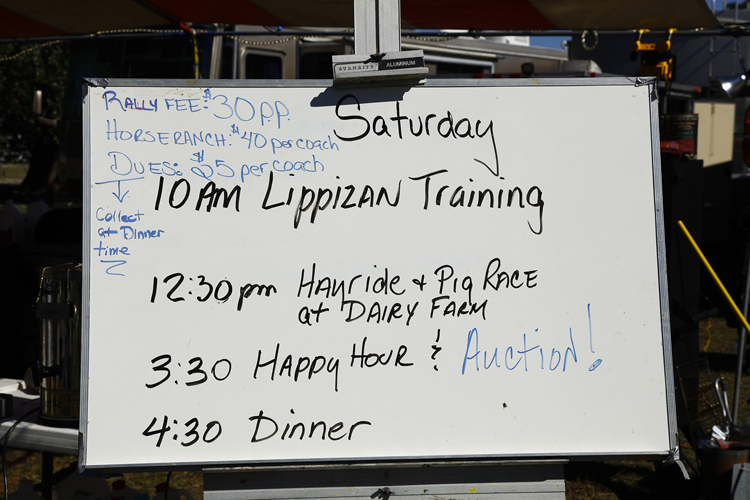 STANRITE ALUMINUM
RALLY FEE: $30 P.P.
HORSE RANCH: $40 per coach
DUES: $5 per coach
↓
Collect
at Dinner
time
Saturday
10 AM LIPPIZAN Training
12:30 pm HAYRIDE + Pig RACE
at DAIRY FARM
3:30 HAPPY HOUR & Auction!
4:30 Dinner